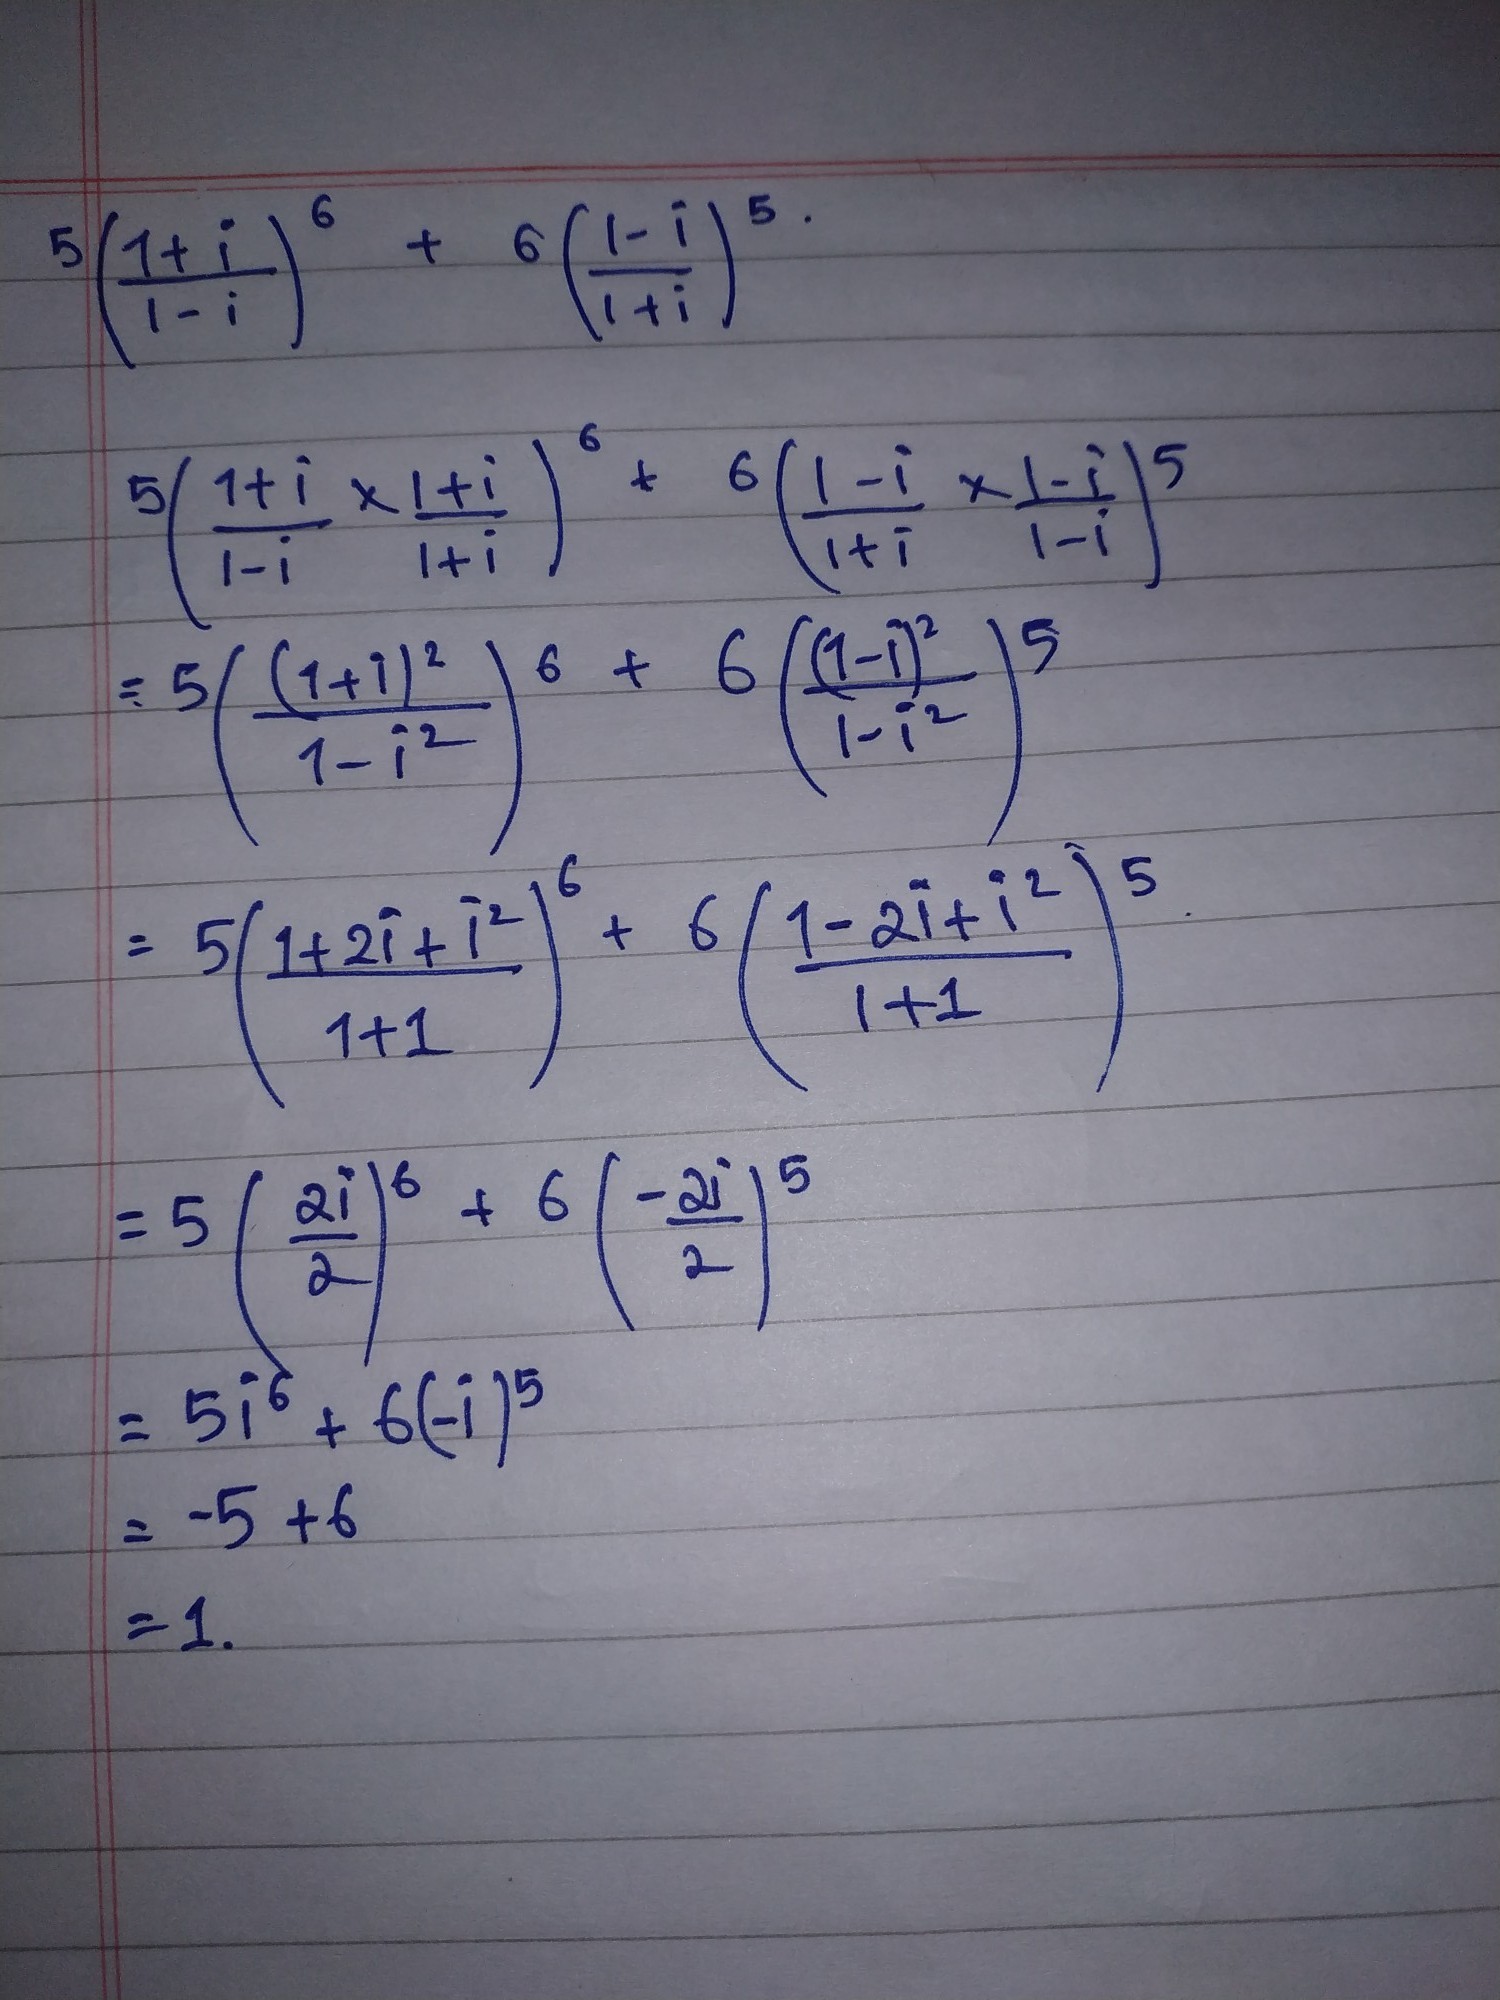 5((1+i)/(1-i))^6 + 6((1-i)/(1+i))^5.
5((1+i)/(1-i) × (1+i)/(1+i))^6 + 6((1-i)/(1+i) × (1-i)/(1-i))^5
= 5((1+i)^2/(1-i^2))^6 + 6((1-i)^2/(1-i^2))^5
= 5((1+2i+i^2)/(1+1))^6 + 6((1-2i+i^2)/(1+1))^5.
= 5(2i/2)^6 + 6(-2i/2)^5
= 5i^6 + 6(-i)^5
= -5+6
= 1.